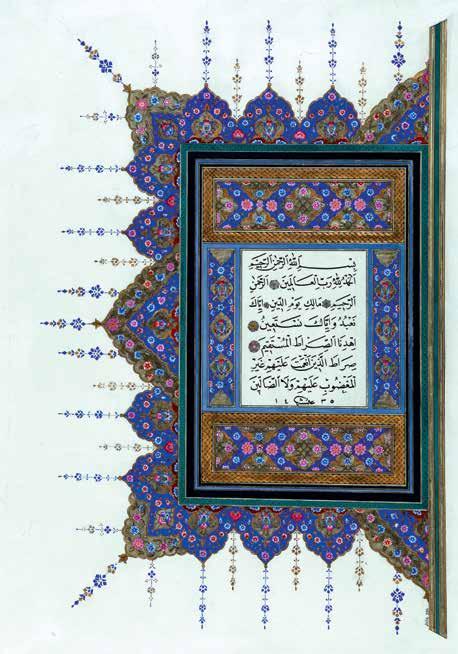 بِسْمِ اللّٰهِ الرَّحْمٰنِ الرَّحِيمِ
اَلْحَمْدُ لِلّٰهِ رَبِّ الْعَالَمِينَ الرَّحْمٰنِ
الرَّحِيمِ مَالِكِ يَوْمِ الدِّينِ اِيَّاكَ
نَعْبُدُ وَاِيَّاكَ نَسْتَعِينُ
اِهْدِنَا الصِّرَاطَ الْمُسْتَقِيمَ
صِرَاطَ الَّذِينَ اَنْعَمْتَ عَلَيْهِمْ غَيْرِ
الْمَغْضُوبِ عَلَيْهِمْ وَلَا الضَّالِّينَ
١٤ ٣٥